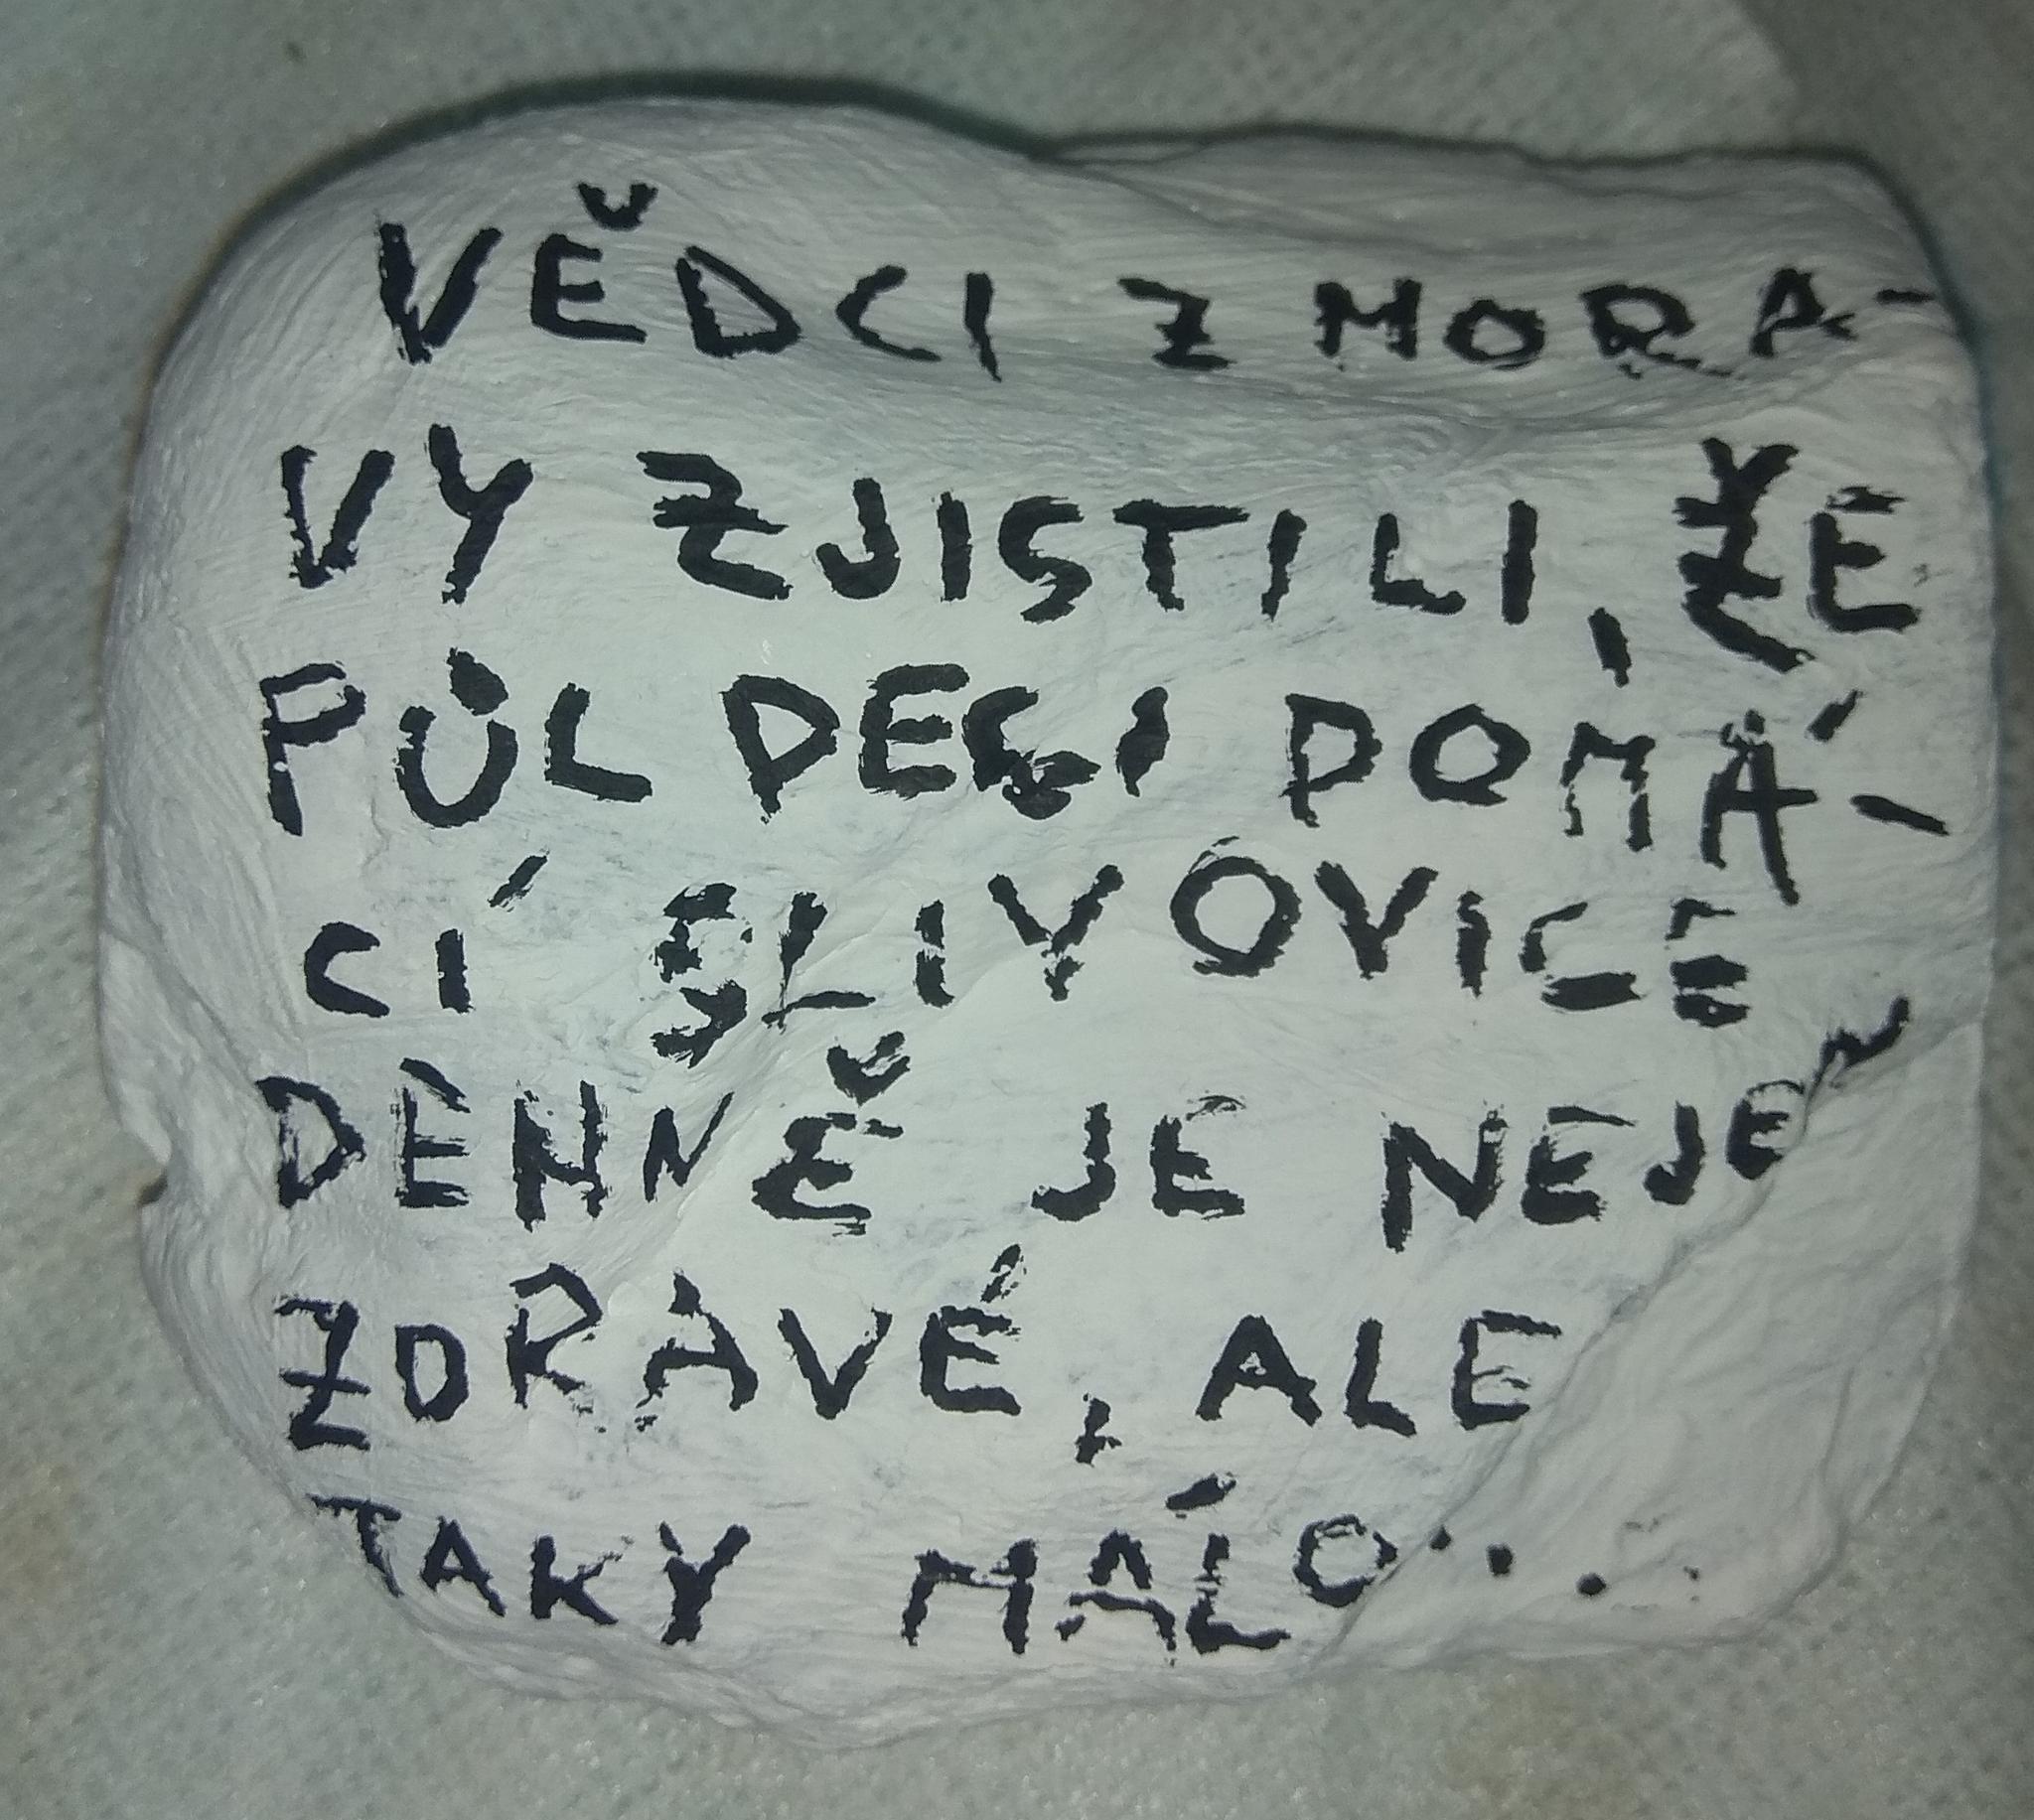 VĚDCI Z MORA-
VY ZJISTILI, ŽE
PŮL DECI DOMÁ-
CÍ SLIVOVICE
DENNĚ JE NEJEN
ZDRAVÉ, ALE
TAKY MÁLO...